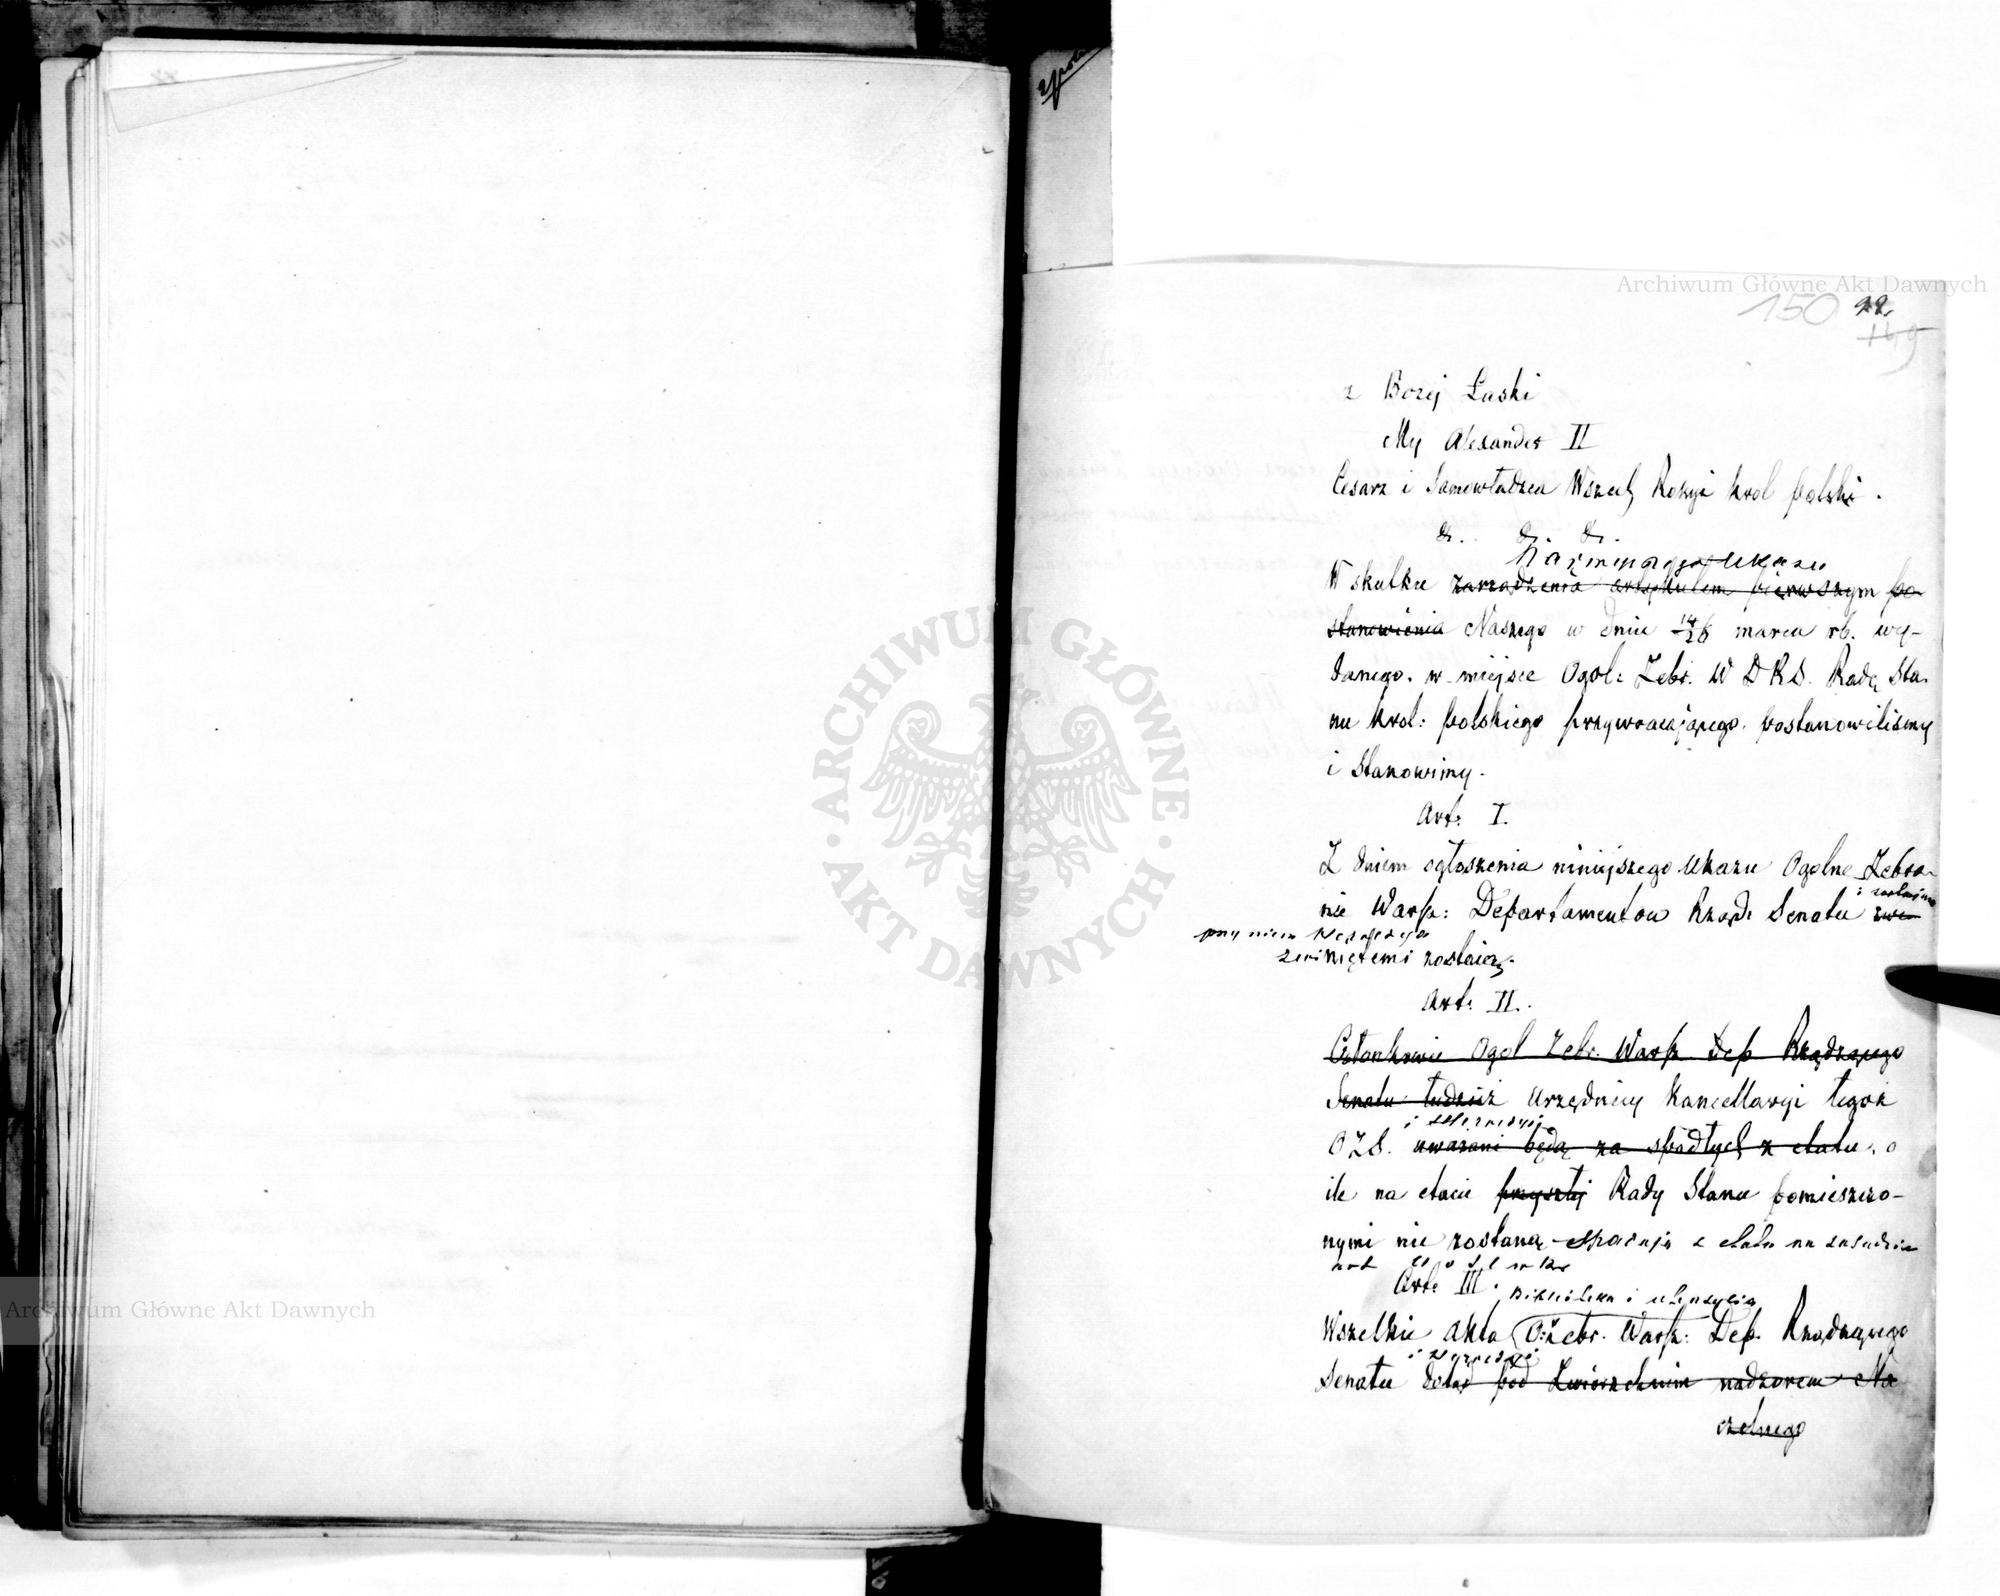 Archiwum Główne Akt Dawnych
150 92.
149
z Bozej Łaski
My Alexander II
Cesarz i Samowładzca Wszech Rosyi Krol Polski.
&. &. &.
Ukazu
W skutku zarządzenia artykułem pierwszym po-
stanowienia Naszego w dniu 14/26 marca rb. wy-
danego. w miejsce Ogol: Zebr. W D R S. Radę Sta-
nu Krol: Polskiego przywracającego. postanowilismy
i Stanowimy.
Art: I.
Z dniem ogłoszenia niniejszego Ukazu Ogolne Zebra-
i
nie Warsz: Departamentow Rząd: Senatu zwi-
przy niem
zwiniętemi zostaią.
Art: II.
Członkowie Ogol Zebr. Warsz Dep Rządzącego
Senatu tudzież Urzędnicy Kancellaryi tegoż
i Heroldyi
OZS. uwazani będą za spadłych z etatu, o
ile na etacie przyszłej Rady Stanu pomieszczo-
nymi nie zostaną spadają z etatu na zasadzie
Art: III.
Biblioteka i utensylia
Wszelkie Akta O: Zebr. Warsz: Dep. Rządzącego
i Heroldyi
Senatu dotąd pod Zwierzchnim nadzorem Na
czelnego
ARCHIWUM GŁÓWNE AKT DAWNYCH
Archiwum Główne Akt Dawnych